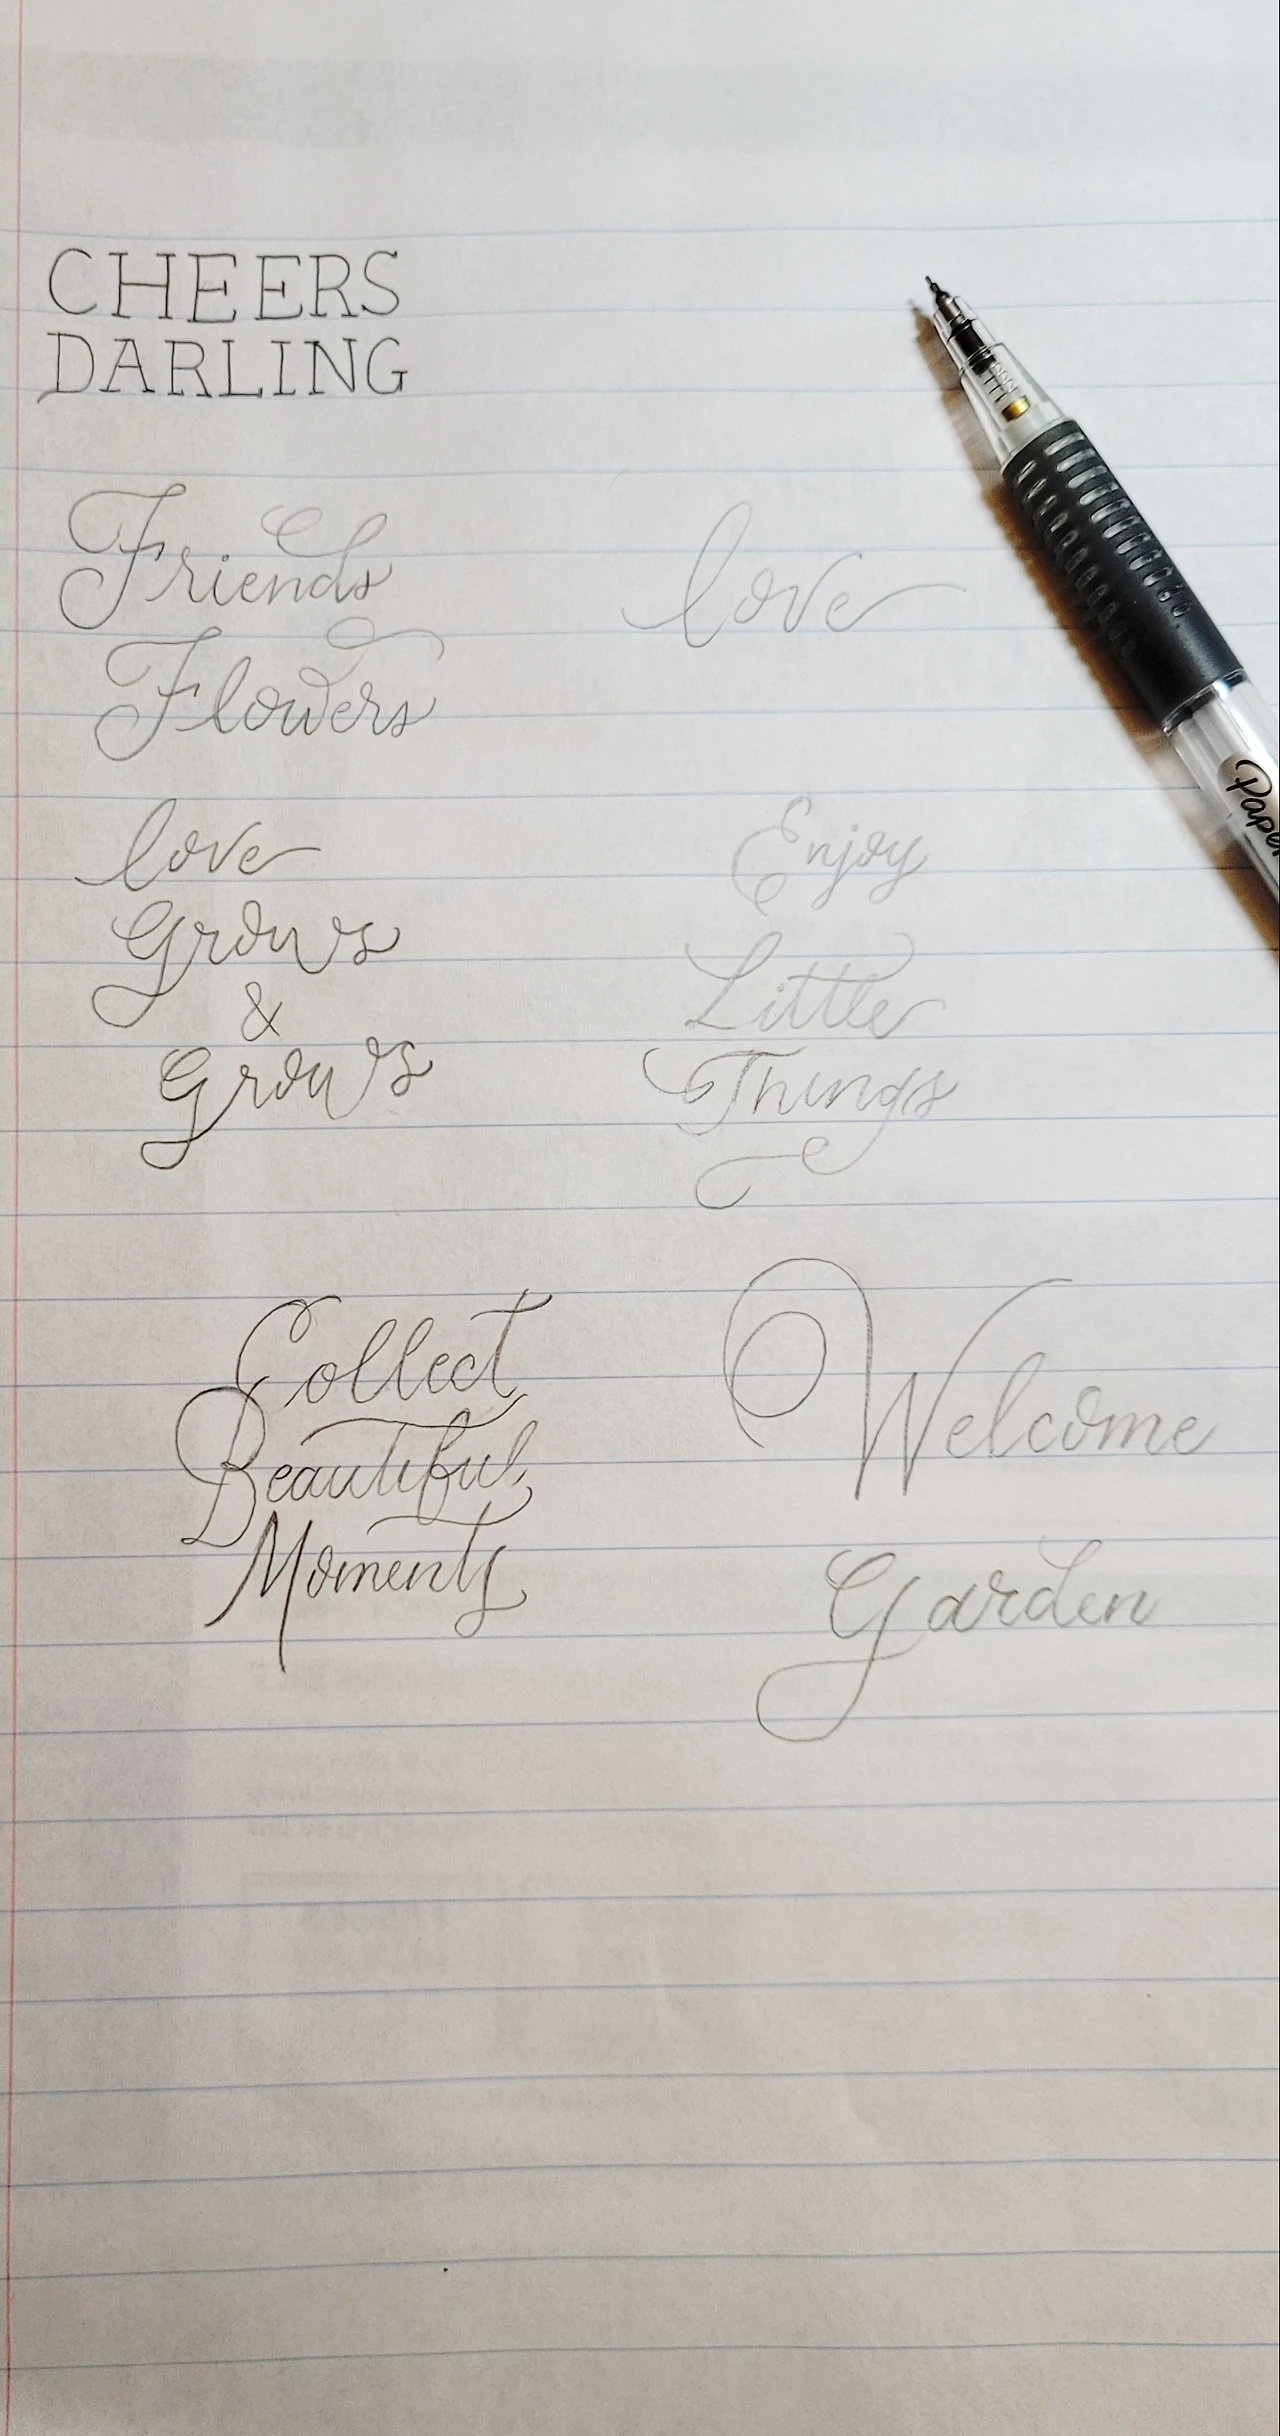 CHEERS
DARLING
Friends
Flowers
love
love
Grows
&
Grows
Enjoy
Little
Things
Collect
Beautiful
Moments
Welcome
Garden
Paper